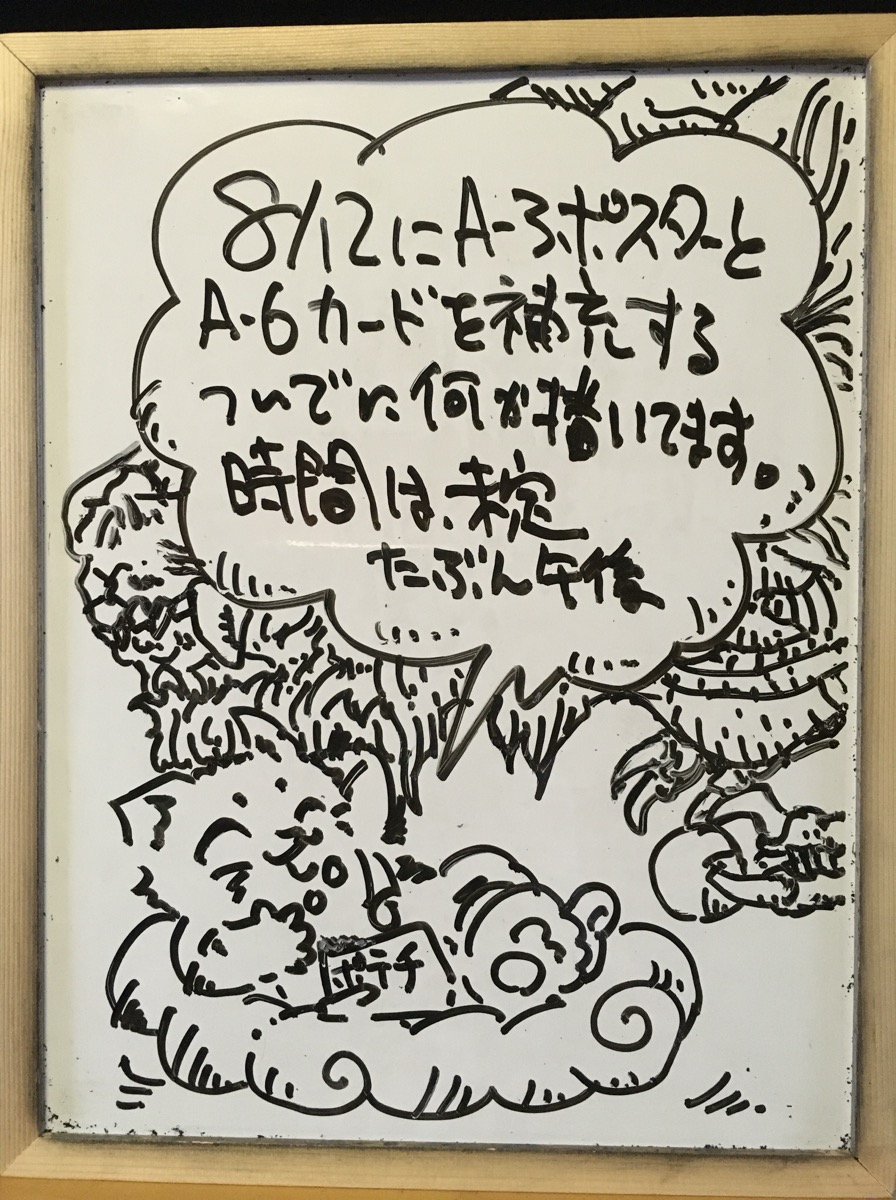 8/12にA-3ポスターと
A-6カードを補充する
ついでに何か描いてます。
時間は、未定
たぶん午後
ポテチ